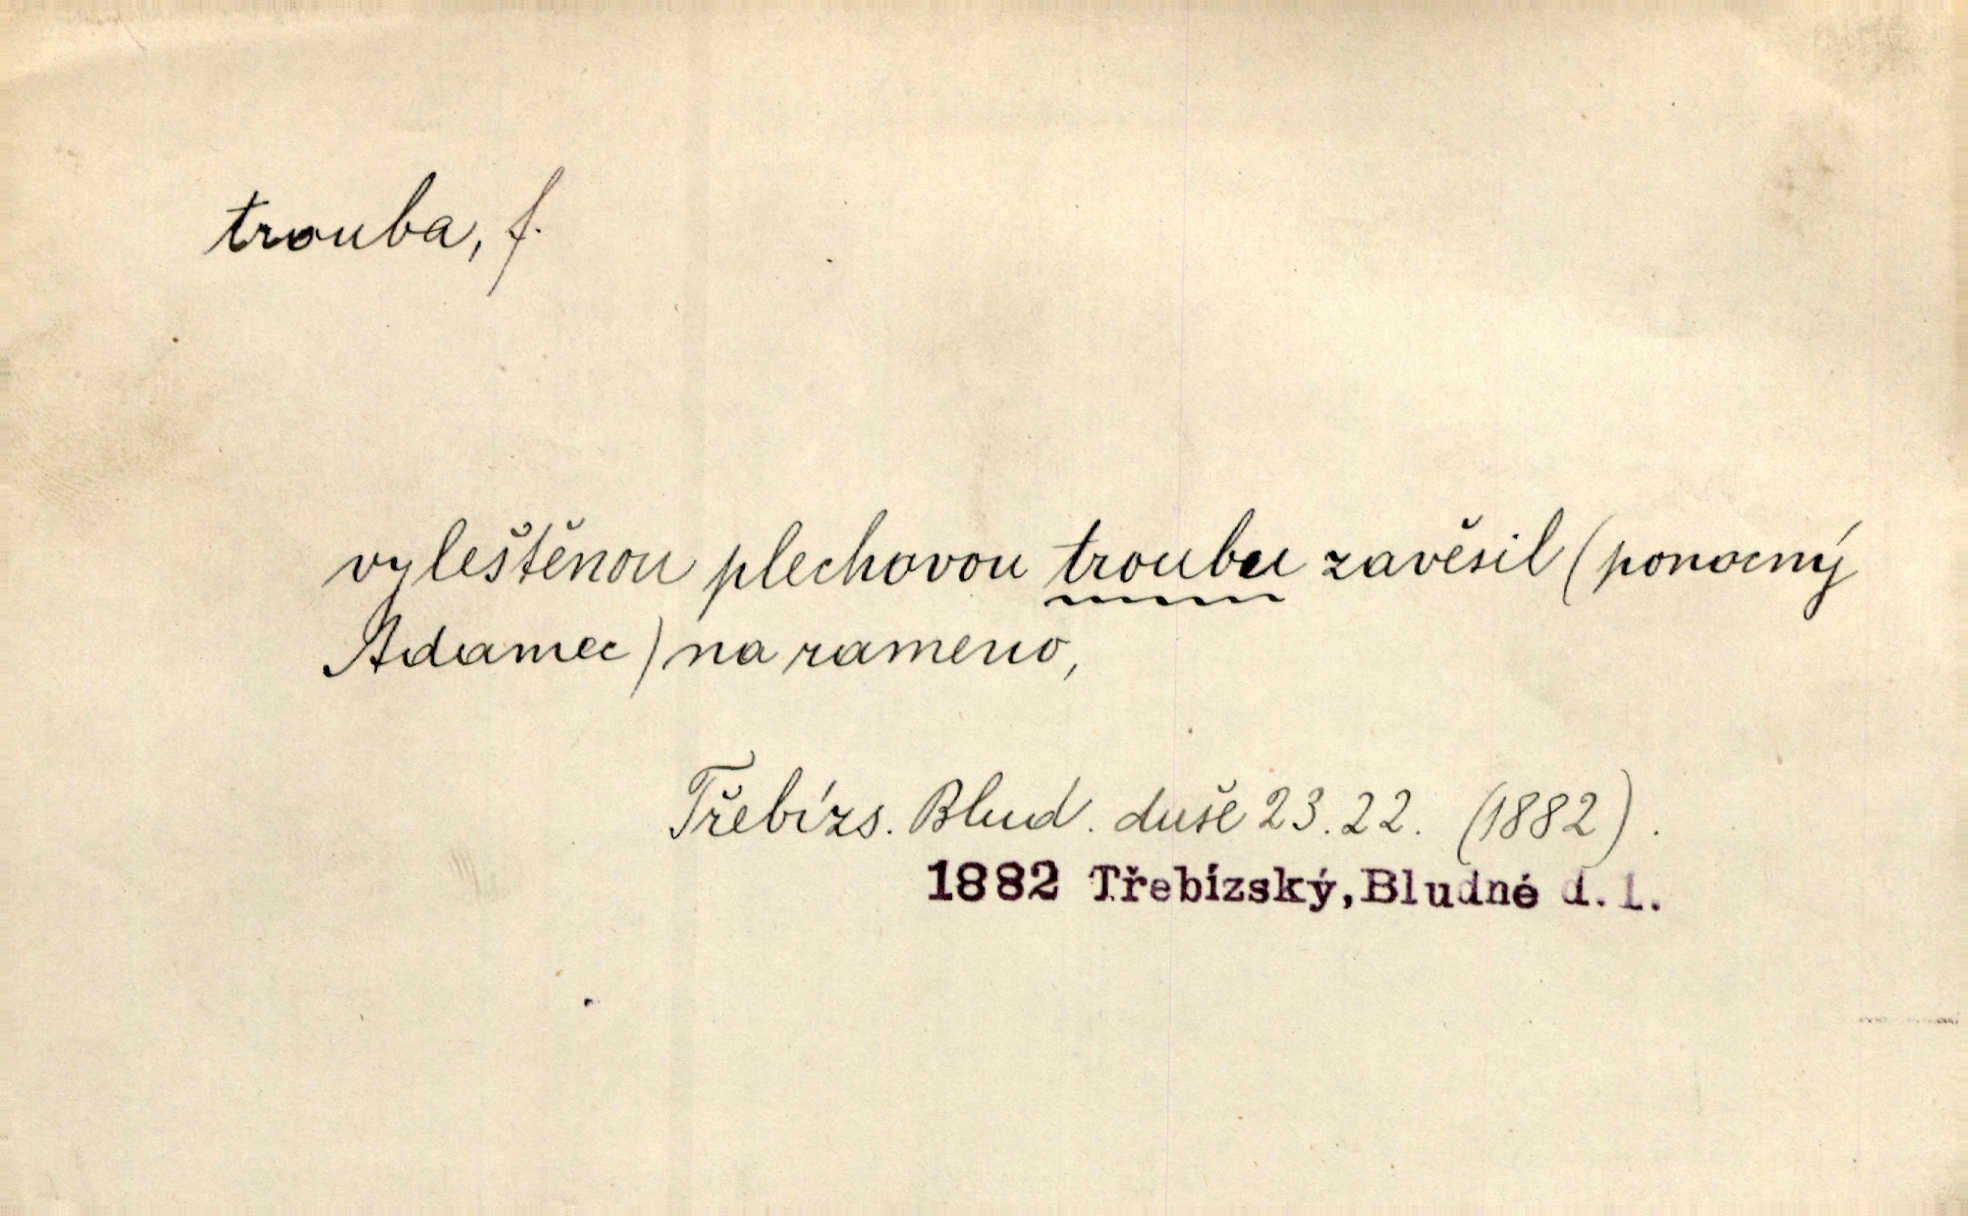 trouba, f.
vyleštěnou plechovou troubu zavěsil (ponocný
Adamec) na rameno,
Třebízs. Blud. duše 23.22. (1882).
1882 Třebízský,Bludné d.1.